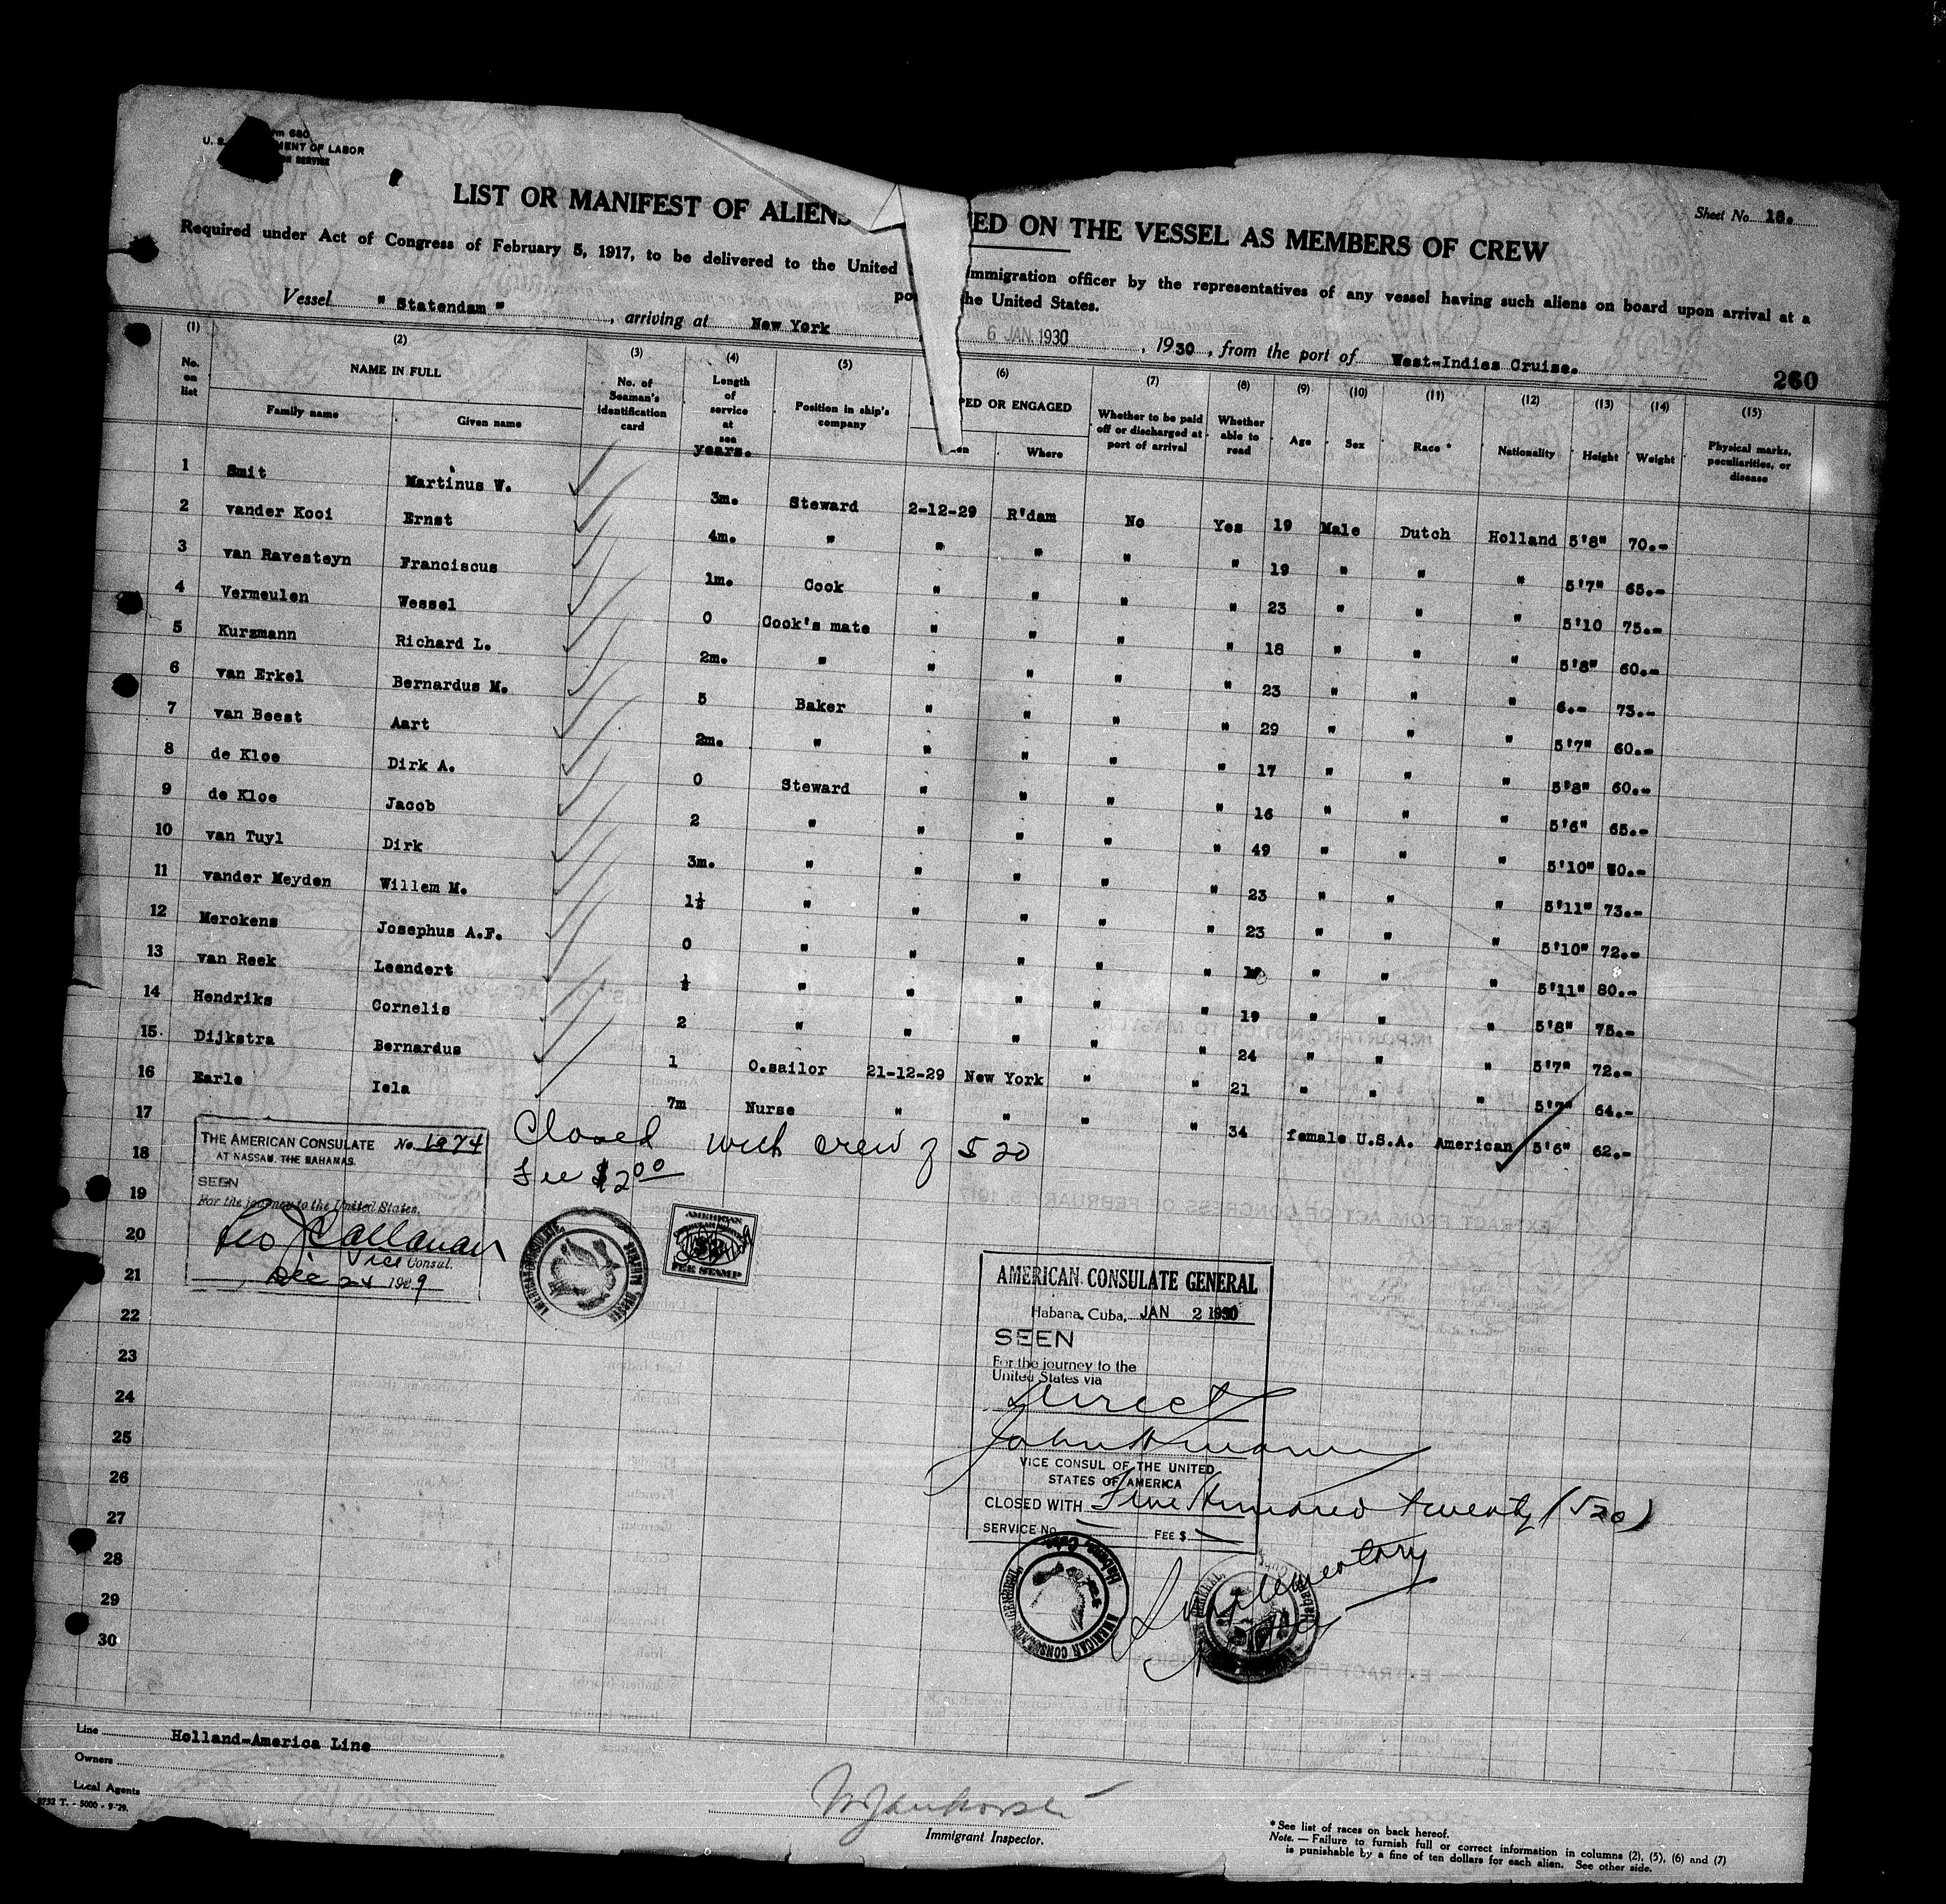 rm 680
U. S. MENT OF LABOR
ON SERVICE
Sheet No. 18.
LIST OR MANIFEST OF ALIENS ED ON THE VESSEL AS MEMBERS OF CREW
Required under Act of Congress of February 5, 1917, to be delivered to the United immigration officer by the representatives of any vessel having such aliens on board upon arrival at a
po he United States.
Vessel " Statendam " , arriving at New York 6 JAN. 1930 , 1930 , from the port of West-Indies Cruise.
260
(1) (2) (3) (4) (5) (6) (7) (8) (9) (10) (11) (12) (13) (14) (15)
No. on list NAME IN FULL Family name Given name No. of Seaman's identification card Length of service at sea years. Position in ship's company PED OR ENGAGED en Where Whether to be paid off or discharged at port of arrival Whether able to read Age Sex Race * Nationality Height Weight Physical marks, peculiarities, or disease
1 Smit Martinus W. 3m. Steward 2-12-29 R'dam No Yes 19 Male Dutch Holland 5'8" 70.-
2 vander Kooi Ernst 4m. " " " " " 19 " " " 5'7" 65.-
3 van Ravesteyn Franciscus 1m. Cook " " " " 23 " " " 5'10 75.-
4 Vermeulen Wessel 0 Cook's mate " " " " 18 " " " 5'8" 60.-
5 Kurzmann Richard L. 2m. " " " " " 23 " " " 6.- 73.-
6 van Erkel Bernardus M. 5 Baker " " " " 29 " " " 5'7" 60.-
7 van Beest Aart 2m. " " " " " 17 " " " 5'8" 60.-
8 de Kloe Dirk A. 0 Steward " " " " 16 " " " 5'6" 65.-
9 de Kloe Jacob 2 " " " " " 49 " " " 5'10" 80.-
10 van Tuyl Dirk 3m. " " " " " 23 " " " 5'11" 73.-
11 vander Meyden Willem M. 1½ " " " " " 23 " " " 5'10" 72.-
12 Merckens Josephus A.F. 0 " " " " " " " " 5'11" 80.-
13 van Reek Leendert ½ " " " " " 19 " " " 5'8" 75.-
14 Hendriks Cornelis 2 " " " " " 24 " " " 5'7" 72.-
15 Dijkstra Bernardus 1 O.sailor 21-12-29 New York " " 21 " " " 5'7" 64.-
16 Earle Iela 7m Nurse " " " " 34 female U.S.A. American 5'6" 62.-
17
18
19
20
21
22
23
24
25
26
27
28
29
30
THE AMERICAN CONSULATE No. 1274
AT NASSAU, THE BAHAMAS.
SEEN
For the journey to the United States.
Geo J Callanan
Vice Consul.
Dec 24 1929
Closed with crew of 520
Fee $2.00
AMERICAN CONSULATE, NASSAU, BAHAMAS
AMERICAN
FEE STAMP
AMERICAN CONSULATE GENERAL
Habana, Cuba, JAN 2 1930
SEEN
For the journey to the
United States via
Direct
VICE CONSUL OF THE UNITED
STATES OF AMERICA
CLOSED WITH Five Hundred twenty (520)
SERVICE No. FEE $
AMERICAN CONSULATE GENERAL, Habana, Cuba.
Supplementary
Line Holland-America Line
Owners
Local Agents
8732 T. - 5000 - 9-'29.
Immigrant Inspector.
* See list of races on back hereof.
Note. — Failure to furnish full or correct information in columns (2), (5), (6) and (7)
is punishable by a fine of ten dollars for each alien. See other side.